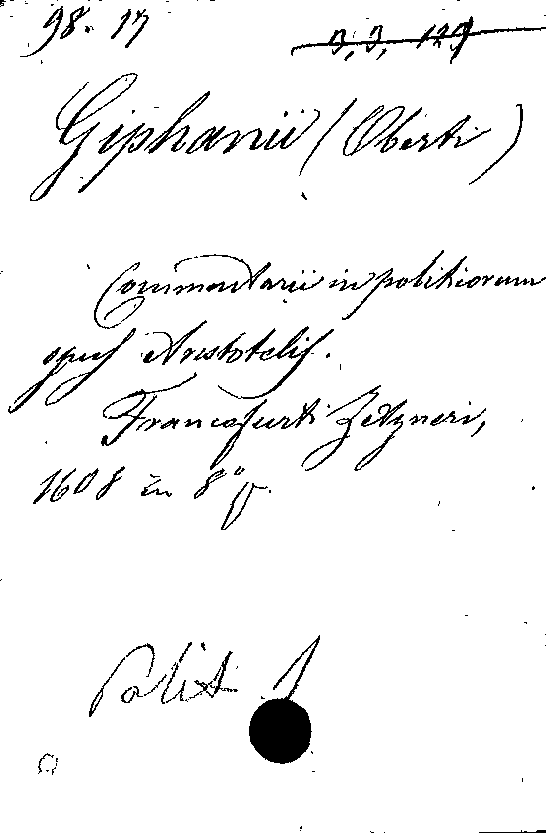 98. 17 3, 3, 129
Giphanii (Oberti)
Commentarii in politicorum
opus Aristotelis.
Francofurti Zetzneri,
1608 in 8º
Polit